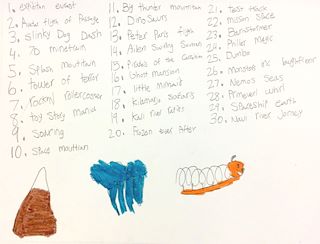 1. expitian everest
2. Avatar flight of Passage
3. Slinky Dog Dash
4. 7D minetrain
5. Splash mountain
6. tower of terror
7. Rockn rollercoaster
8. toy Story mania
9. Soaring
10. Space mountian
11. Big thunder mountian
12. DinoSaurs
13. Peter Pans flight
14. Alien Swirling Saucers
15. Pirates of the
16. Ghost mansion
17. little mirmaid
18. Kilamajaro Safaris
19. Kali river
20. Frozen Ever After
21. test track
22. mission Space
23. Barnstormer
24. Philar Magic
25. Dumbo
26. monsters inc laughfloor
27. Nemo's Seas
28. Primeval whirl
29. Spaceship earth
30. Navi river Jorney